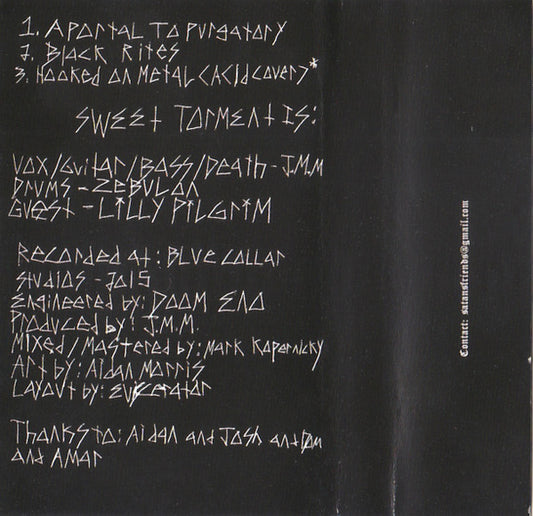 1. A Portal To Purgatory
2. Black Rites
3. Hooked on Metal (Acid cover)*
Sweet Torment Is:
Vox/Guitar/Bass/Death - J.M.M
Drums - Zebulon
Guest - Lilly Pilgrim
Recorded at: Blue Collar
Studios - 2015
Engineered by: Doom Eno
Produced by: J.M.M.
Mixed/Mastered by: Mark Kopernicky
Art by: Aidan Morris
Layout by: Eviscerator
Thanks to: Aidan and Josh and Dom
and Amar
Contact: satansfriends@gmail.com